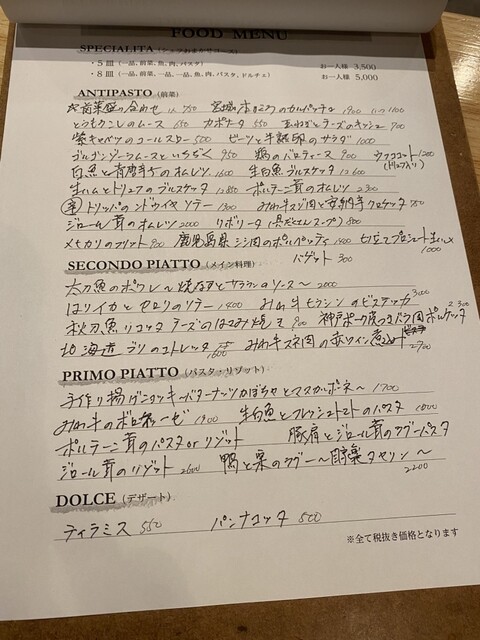 FOOD MENU
SPECIALITA (シェフおまかせコース)
・5皿 (一品、前菜、魚、肉、パスタ) お一人様 3,500
・8皿 (一品、前菜、一品、一品、魚、肉、パスタ、ドルチェ) お一人様 5,000
ANTIPASTO (前菜)
前菜盛り合わせ 1人 750 宮城 のカルパッチョ 1900
とうもろこしのムース 650 カポナータ 550 玉ねぎとチーズのキッシュ 900
紫キャベツのコールスロー 500 ビーツと半熟卵のサラダ 1000
ゴルゴンゾーラムースといちぢく 950 鶏のバロティーヌ 900 1200
白魚と青唐辛子のオムレツ 1600 生白魚ブルスケッタ 1600
生ハムとトリュフのブルスケッタ 2850 ポルチーニ茸のオムレツ 2300
トリッパの ソテー 1300 みやわ牛スジ肉と安納芋クロケッタ 750
ジロール茸のオムレツ 2000 リボリータ 800
メヒカリのフリット 900 鹿児島県 シシ肉のポルペッティ 1400 切立てプロシュート 1000
バゲット 300
SECONDO PIATTO (メイン料理)
太刀魚のポワレ ～焼ナスとサフランのソース～ 2000
はりイカとセロリのソテー 1400 みやわ牛 のビステッカ 3000
秋刀魚リコッタチーズのはさみ焼き 900 神戸ポーク バラ肉ポルケッタ 2300
北海道ブリのコトレッタ 1600 みやわ牛スネ肉の赤ワイン煮込み 2700
PRIMO PIATTO (パスタ・リゾット)
手作り揚げニョッキ～バターナッツかぼちゃとマスカルポーネ～ 1700
みやわ牛のボロネーゼ 1900 生白魚とフレッシュトマトのパスタ 1800
ポルチーニ茸のパスタ or リゾット 豚肩とジロール茸のラグーパスタ
ジロール茸のリゾット 2600 鴨と栗のラグー～ タヤリン～ 2200
DOLCE (デザート)
ティラミス 550 パンナコッタ 500
※全て税抜き価格となります